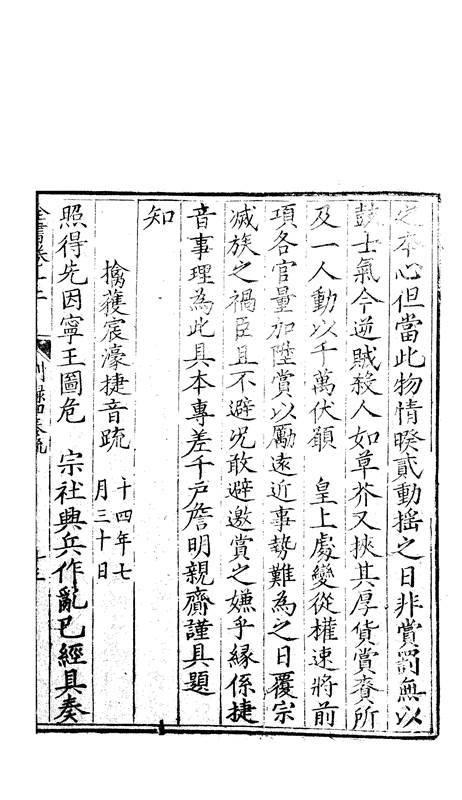 之本心但當此物情暌貳動揺之日非賞罰無以
鼓士氣今逆賊殺人如草芥又挾其厚貨賞賚所
及一人動以千萬伏願 皇上處變從權速將前
項各官量加陞賞以勵遠近事勢難為之日覆宗
滅族之禍臣且不避况敢避邀賞之嫌乎緣係捷
音事理為此具本專差千戸詹明親齎謹具題
知
擒獲宸濠捷音疏 十四年七月三十日
照得先因寧王圖危 宗社興兵作亂已經具奏
全書卷十二